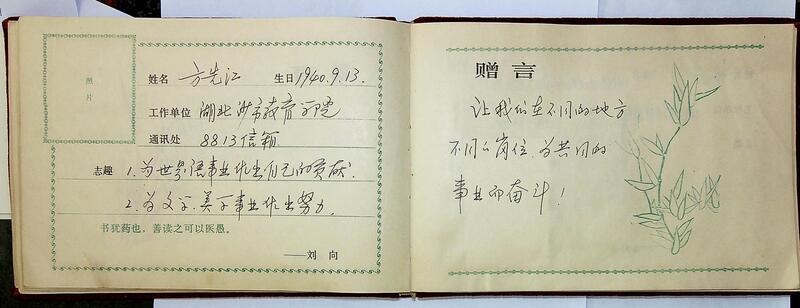 照
片
姓名 方先江 生日 1940.9.13.
工作单位 湖北沙市教育学院
通讯处 8813信箱
志趣 1.为世界语事业作出自己的贡献.
2.为文学.美学事业作出努力.
书犹药也,善读之可以医愚。
——刘 向
赠言
让我们在不同的地方
不同的岗位,为共同的
事业而奋斗!